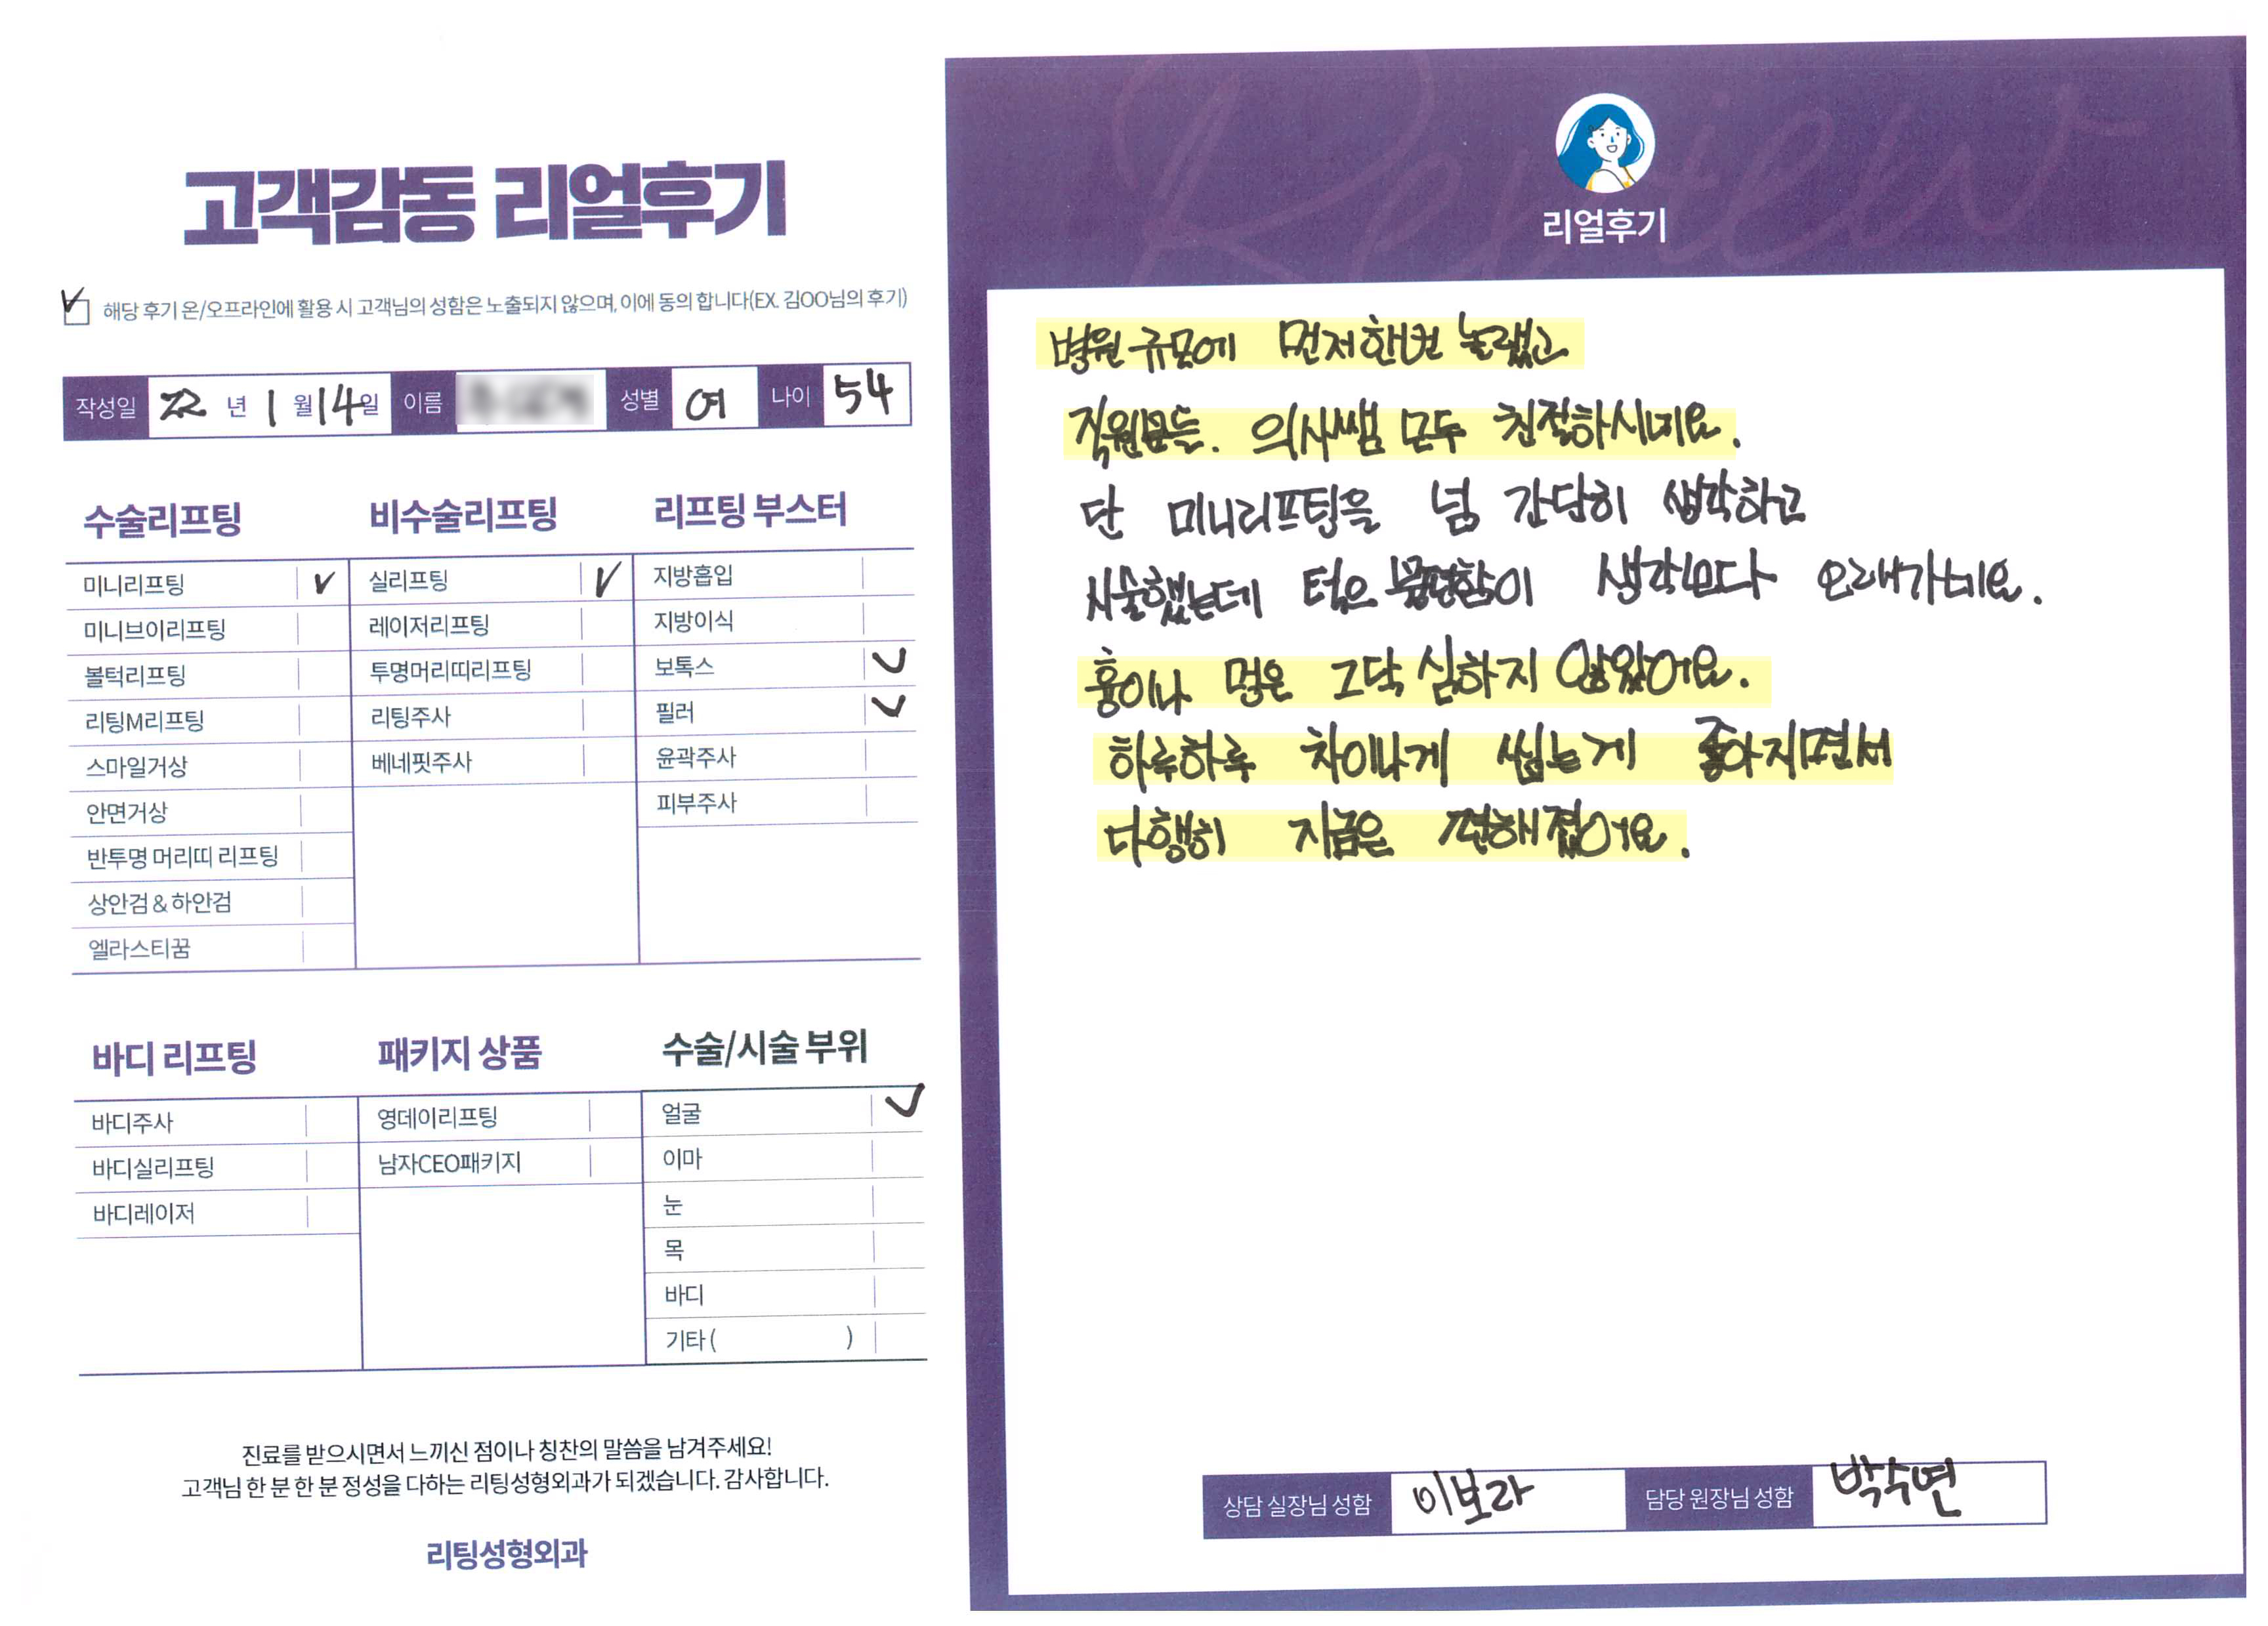 고객감동 리얼후기
해당 후기 온/오프라인에 활용 시 고객님의 성함은 노출되지 않으며, 이에 동의 합니다(EX. 김OO님의 후기)
작성일 22 년 1 월 14일 이름 성별 여 나이 54
수술리프팅
미니리프팅
미니브이리프팅
볼턱리프팅
리팅M리프팅
스마일거상
안면거상
반투명 머리띠 리프팅
상안검 & 하안검
엘라스티꿈
비수술리프팅
실리프팅
레이저리프팅
투명머리띠리프팅
리팅주사
베네핏주사
리프팅 부스터
지방흡입
지방이식
보톡스
필러
윤곽주사
피부주사
바디 리프팅
바디주사
바디실리프팅
바디레이저
패키지 상품
영데이리프팅
남자CEO패키지
수술/시술 부위
얼굴
이마
눈
목
바디
기타 ( )
진료를 받으시면서 느끼신 점이나 칭찬의 말씀을 남겨주세요!
고객님 한 분 한 분 정성을 다하는 리팅성형외과가 되겠습니다. 감사합니다.
리팅성형외과
Review
리얼후기
병원 규모에 먼저한번 놀랬고
직원분들. 의사쌤 모두 친절하시네요.
단 미니리프팅을 넘 간단히 생각하고
시술했는데 턱은 불편함이 생각보다 오래가네요.
흉이나 멍은 그닥 심하지 않았어요.
하루하루 차이나게 씹는게 좋아지면서
다행히 지금은 편해졌어요.
상담 실장님 성함 이보라 담당 원장님 성함 박수연